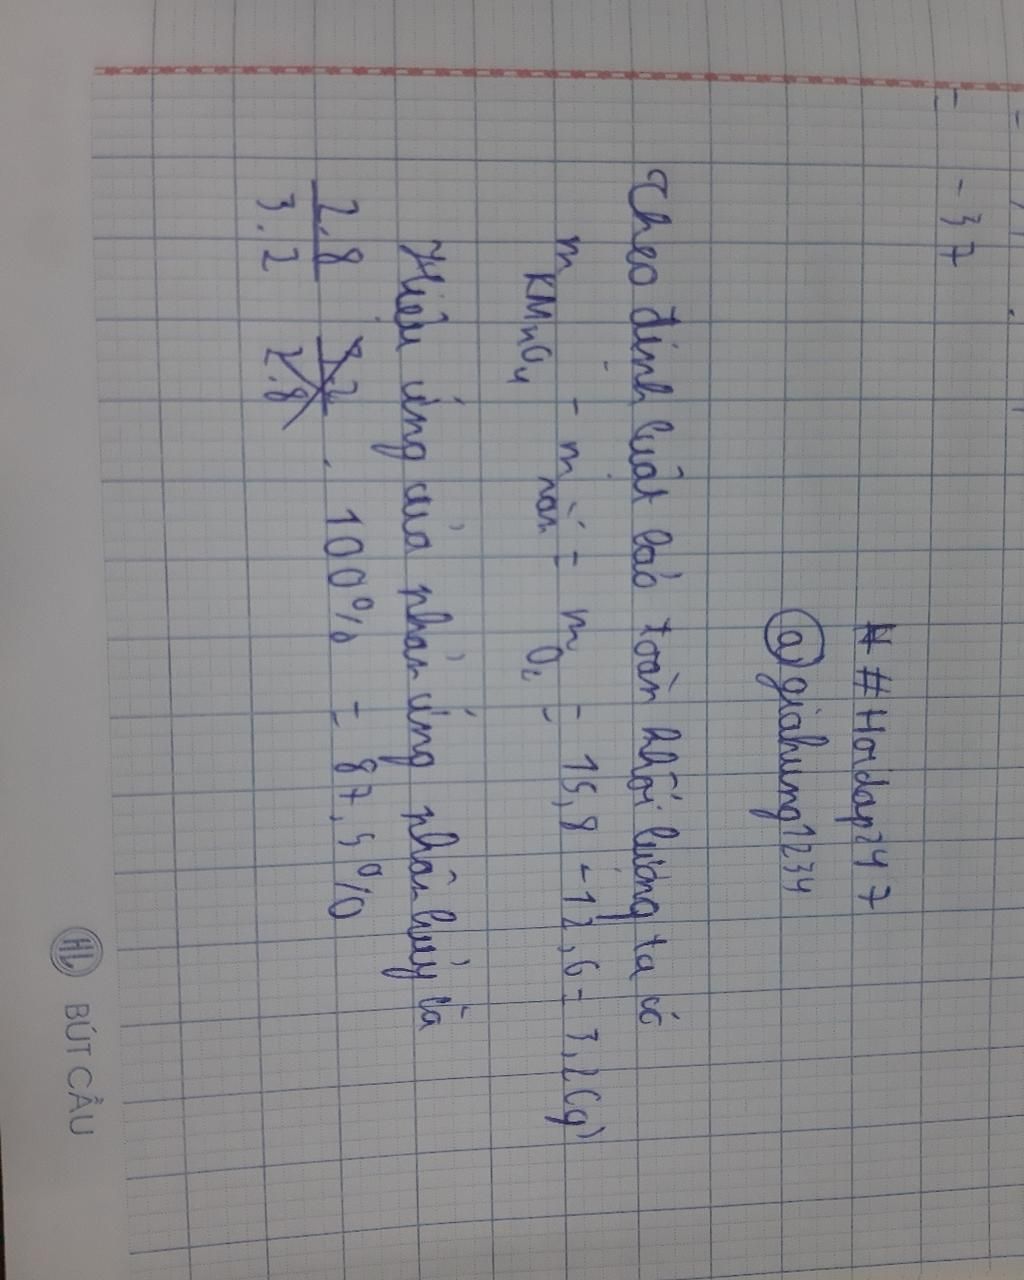 - 37
# #Hoidap247
@giahung1234
Theo định luật bảo toàn khối lượng ta có
m KMnO4 - m rắn = m O2 = 15,8 - 12,6 = 3,2(g)
Hiệu ứng của phản ứng phân hủy là
2.8/3.2 . 100% = 87,5%
HL BÚT CẦU